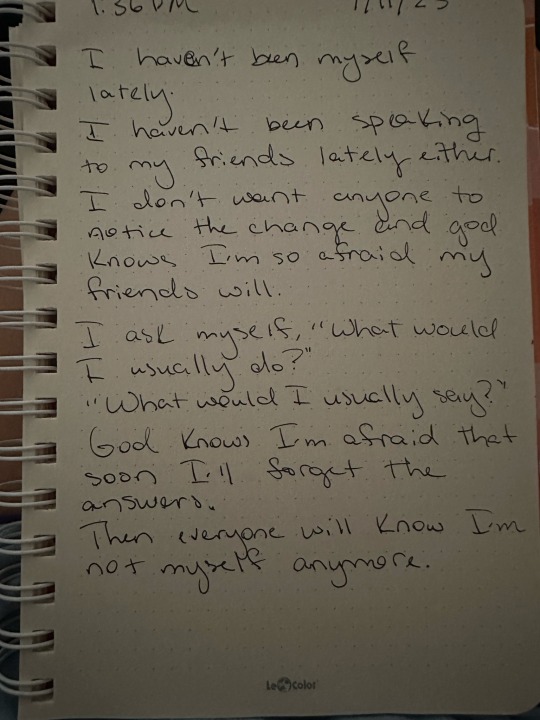 1:36 PM
I haven't been myself
lately.
I haven't been speaking
to my friends lately either.
I don't want anyone to
notice the change and god
knows I'm so afraid my
friends will.
I ask myself, "What would
I usually do?"
"What would I usually say?"
God knows I'm afraid that
soon I'll forget the
answers.
Then everyone will know I'm
not myself anymore.
LeColor